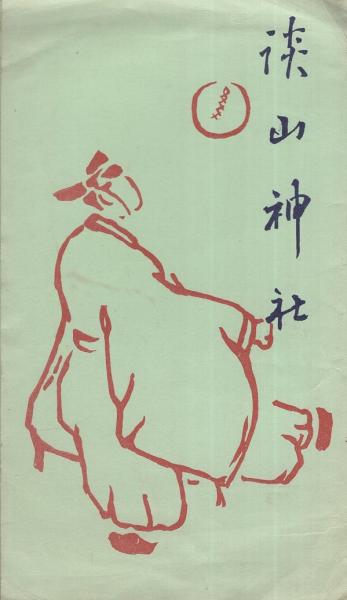 談山神社